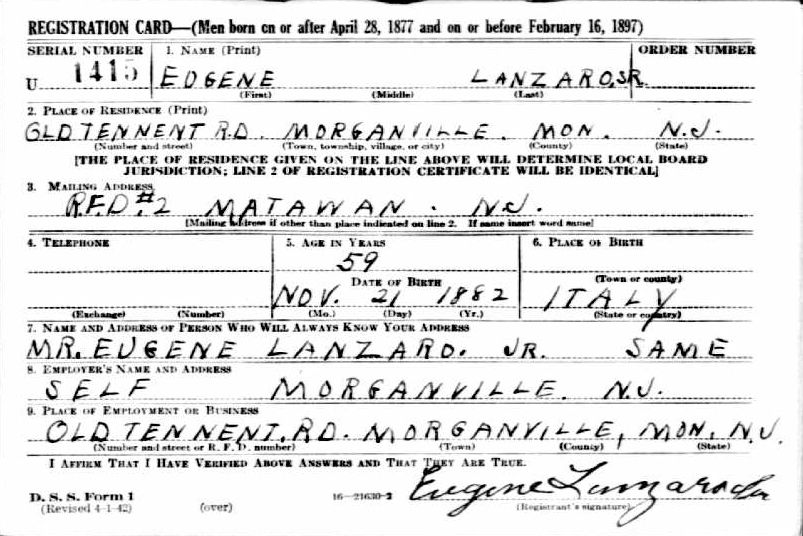 REGISTRATION CARD—(Men born on or after April 28, 1877 and on or before February 16, 1897)
SERIAL NUMBER 1. NAME (Print) ORDER NUMBER
U 1415 EUGENE LANZARO, SR.
(First) (Middle) (Last)
2. PLACE OF RESIDENCE (Print)
OLD TENNENT RD. MORGANVILLE. MON. N.J.
(Number and street) (Town, township, village, or city) (County) (State)
[THE PLACE OF RESIDENCE GIVEN ON THE LINE ABOVE WILL DETERMINE LOCAL BOARD
JURISDICTION; LINE 2 OF REGISTRATION CERTIFICATE WILL BE IDENTICAL]
3. MAILING ADDRESS
R.F.D #2 MATAWAN. N.J.
[Mailing address if other than place indicated on line 2. If same insert word same]
4. TELEPHONE 5. AGE IN YEARS 6. PLACE OF BIRTH
59
DATE OF BIRTH (Town or county)
NOV. 21 1882 ITALY
(Exchange) (Number) (Mo.) (Day) (Yr.) (State or country)
7. NAME AND ADDRESS OF PERSON WHO WILL ALWAYS KNOW YOUR ADDRESS
MR. EUGENE LANZARO. JR. SAME
8. EMPLOYER'S NAME AND ADDRESS
SELF MORGANVILLE. N.J.
9. PLACE OF EMPLOYMENT OR BUSINESS
OLD TENNENT. RD. MORGANVILLE, MON. N.J.
(Number and street or R. F. D. number) (Town) (County) (State)
I AFFIRM THAT I HAVE VERIFIED ABOVE ANSWERS AND THAT THEY ARE TRUE.
Eugene Lanzaro Sr
D. S. S. Form 1 16—21630-2
(Revised 4-1-42) (over) (Registrant's signature)